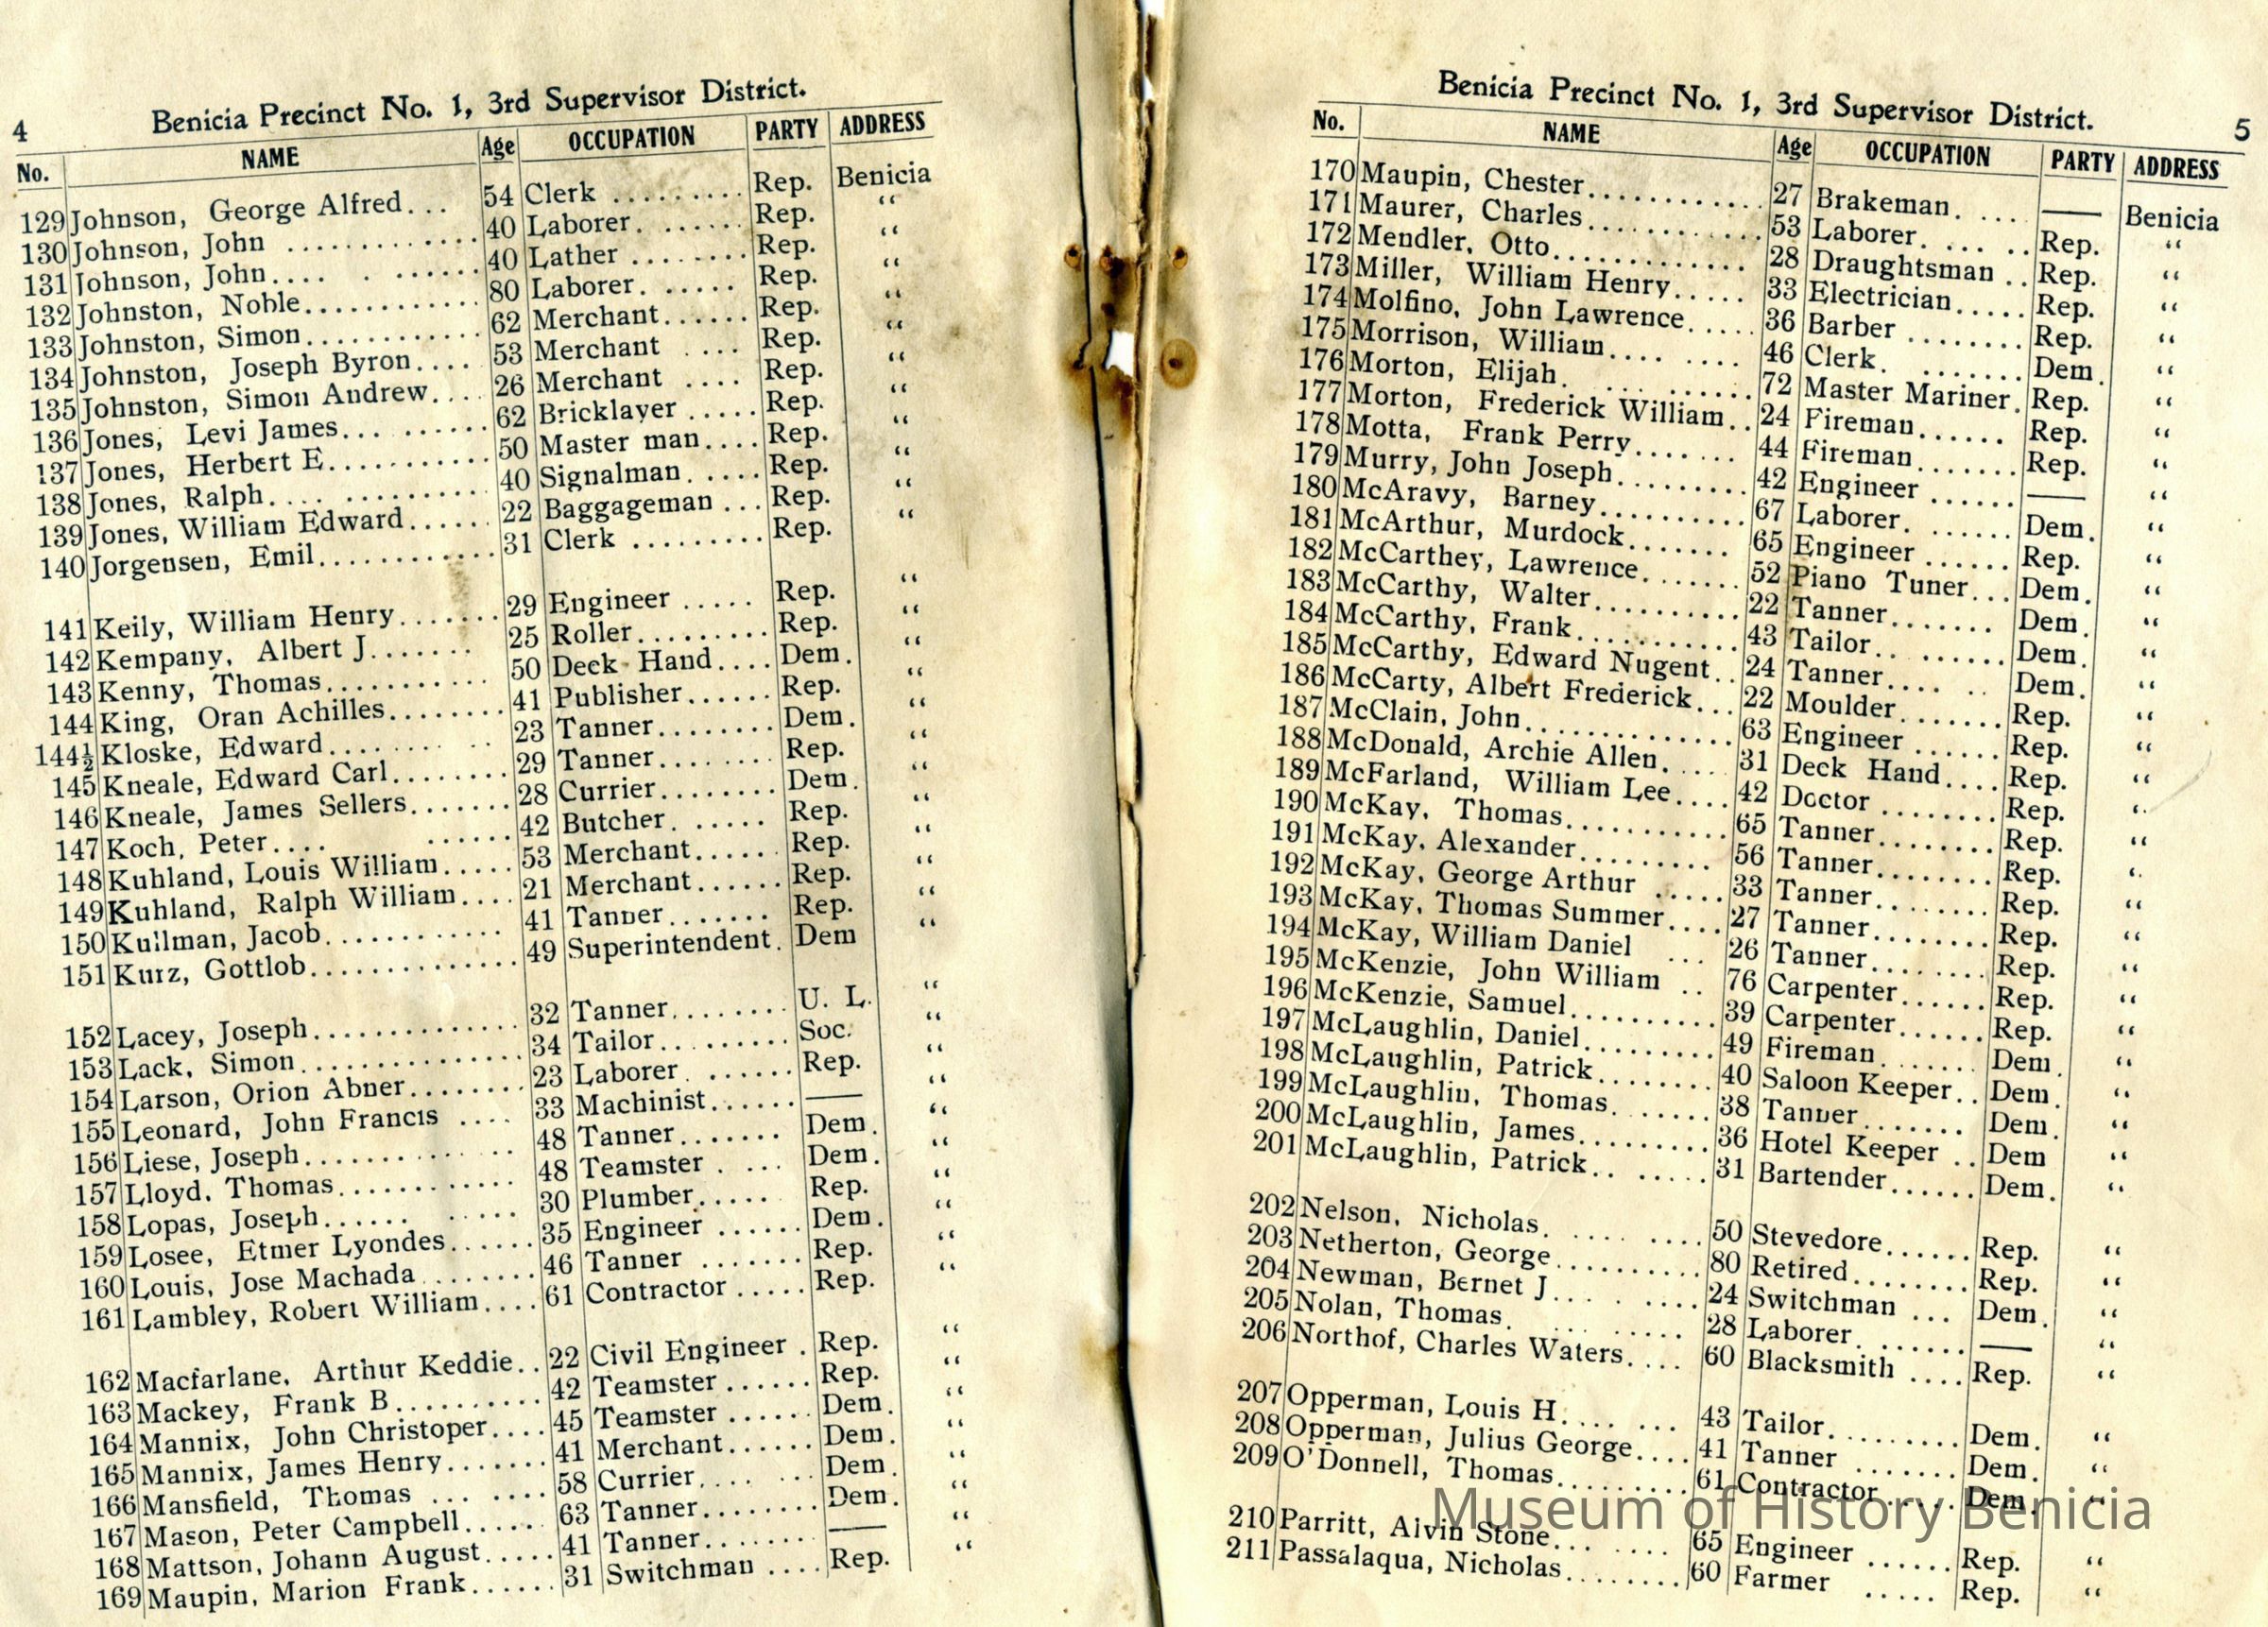 4 Benicia Precinct No. 1, 3rd Supervisor District.
No. NAME Age OCCUPATION PARTY ADDRESS
129 Johnson, George Alfred... 54 Clerk .......... Rep. Benicia
130 Johnson, John ............. 40 Laborer. ....... Rep. “
131 Johnson, John.... . ...... 40 Lather ........ Rep. “
132 Johnston, Noble............ 80 Laborer. ...... Rep. “
133 Johnston, Simon............ 62 Merchant...... Rep. “
134 Johnston, Joseph Byron.... 53 Merchant .... Rep. “
135 Johnston, Simon Andrew.... 26 Merchant .... Rep. “
136 Jones, Levi James... ...... 62 Bricklayer ..... Rep. “
137 Jones, Herbert E........... 50 Master man.... Rep. “
138 Jones, Ralph.... .......... 40 Signalman. .... Rep. “
139 Jones, William Edward...... 22 Baggageman ... Rep. “
140 Jorgensen, Emil............ 31 Clerk ......... Rep. “
141 Keily, William Henry....... 29 Engineer ..... Rep. “
142 Kempany, Albert J....... 25 Roller......... Rep. “
143 Kenny, Thomas........... 50 Deck Hand.... Dem. “
144 King, Oran Achilles........ 41 Publisher...... Rep. “
144½ Kloske, Edward......... .. 23 Tanner........ Dem. “
145 Kneale, Edward Carl........ 29 Tanner........ Rep. “
146 Kneale, James Sellers....... 28 Currier........ Dem. “
147 Koch, Peter.... ...... 42 Butcher. ..... Rep. “
148 Kuhland, Louis William..... 53 Merchant...... Rep. “
149 Kuhland, Ralph William.... 21 Merchant...... Rep. “
150 Kullman, Jacob............ 41 Tanner....... Rep. “
151 Kurz, Gottlob.............. 49 Superintendent. Dem “
152 Lacey, Joseph.............. 32 Tanner........ U. L. “
153 Lack, Simon............... 34 Tailor......... Soc. “
154 Larson, Orion Abner........ 23 Laborer. ...... Rep. “
155 Leonard, John Francis .... 33 Machinist...... —— “
156 Liese, Joseph............. 48 Tanner....... Dem. “
157 Lloyd, Thomas............ 48 Teamster . ... Dem. “
158 Lopas, Joseph...... ..... 30 Plumber...... Rep. “
159 Losee, Etmer Lyondes...... 35 Engineer ...... Dem. “
160 Louis, Jose Machada ........ 46 Tanner ....... Rep. “
161 Lambley, Robert William.... 61 Contractor ..... Rep. “
162 Macfarlane, Arthur Keddie.. 22 Civil Engineer . Rep. “
163 Mackey, Frank B.......... 42 Teamster ...... Rep. “
164 Mannix, John Christoper.... 45 Teamster ...... Dem. “
165 Mannix, James Henry....... 41 Merchant...... Dem. “
166 Mansfield, Thomas ... .... 58 Currier.... ... Dem. “
167 Mason, Peter Campbell..... 63 Tanner........ Dem. “
168 Mattson, Johann August..... 41 Tanner........ —— “
169 Maupin, Marion Frank...... 31 Switchman .... Rep. “
Benicia Precinct No. 1, 3rd Supervisor District. 5
No. NAME Age OCCUPATION PARTY ADDRESS
170 Maupin, Chester............ 27 Brakeman. .... —— Benicia
171 Maurer, Charles............ 53 Laborer. ... .. Rep. “
172 Mendler, Otto.............. 28 Draughtsman .. Rep. “
173 Miller, William Henry..... 33 Electrician..... Rep. “
174 Molfino, John Lawrence..... 36 Barber ........ Rep. “
175 Morrison, William.... .... 46 Clerk. ....... Dem. “
176 Morton, Elijah. . ........ 72 Master Mariner. Rep. “
177 Morton, Frederick William.. 24 Fireman...... Rep. “
178 Motta, Frank Perry....... 44 Fireman....... Rep. “
179 Murry, John Joseph......... 42 Engineer ...... —— “
180 McAravy, Barney.......... 67 Laborer. ...... Dem. “
181 McArthur, Murdock....... 65 Engineer ...... Rep. “
182 McCarthey, Lawrence....... 52 Piano Tuner... Dem. “
183 McCarthy, Walter.......... 22 Tanner....... Dem. “
184 McCarthy, Frank.......... 43 Tailor.. ...... Dem. “
185 McCarthy, Edward Nugent.. 24 Tanner.... .. Dem. “
186 McCarty, Albert Frederick... 22 Moulder....... Rep. “
187 McClain, John.............. 63 Engineer ...... Rep. “
188 McDonald, Archie Allen. ... 31 Deck Hand.... Rep. “
189 McFarland, William Lee.... 42 Doctor ........ Rep. “
190 McKay, Thomas........... 65 Tanner........ Rep. “
191 McKay, Alexander......... 56 Tanner........ Rep. “
192 McKay, George Arthur ..... 33 Tanner........ Rep. “
193 McKay, Thomas Summer.... 27 Tanner........ Rep. “
194 McKay, William Daniel ... 26 Tanner........ Rep. “
195 McKenzie, John William .. 76 Carpenter...... Rep. “
196 McKenzie, Samuel.......... 39 Carpenter...... Rep. “
197 McLaughlin, Daniel......... 49 Fireman ....... Dem. “
198 McLaughlin, Patrick........ 40 Saloon Keeper.. Dem. “
199 McLaughlin, Thomas. ...... 38 Tanner....... Dem. “
200 McLaughlin, James......... 36 Hotel Keeper .. Dem “
201 McLaughlin, Patrick.. ..... 31 Bartender...... Dem. “
202 Nelson, Nicholas. ... .... 50 Stevedore...... Rep. “
203 Netherton, George.......... 80 Retired........ Rep. “
204 Newman, Bernet J.... .... 24 Switchman ... Dem. “
205 Nolan, Thomas. ... ..... 28 Laborer. ...... —— “
206 Northof, Charles Waters.... 60 Blacksmith .... Rep. “
207 Opperman, Louis H.... ... 43 Tailor......... Dem. “
208 Opperman, Julius George.... 41 Tanner ....... Dem. “
209 O'Donnell, Thomas......... 61 Contractor..... Dem. “
210 Parritt, Alvin Stone... .... 65 Engineer ...... Rep. “
211 Passalaqua, Nicholas........ 60 Farmer ..... Rep. “
Museum of History Benicia